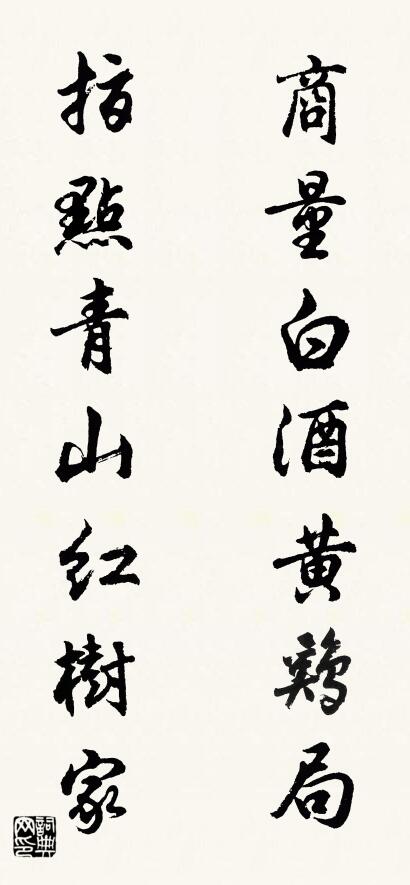 商量白酒黄鷄局
指點青山红樹家
詞典网印